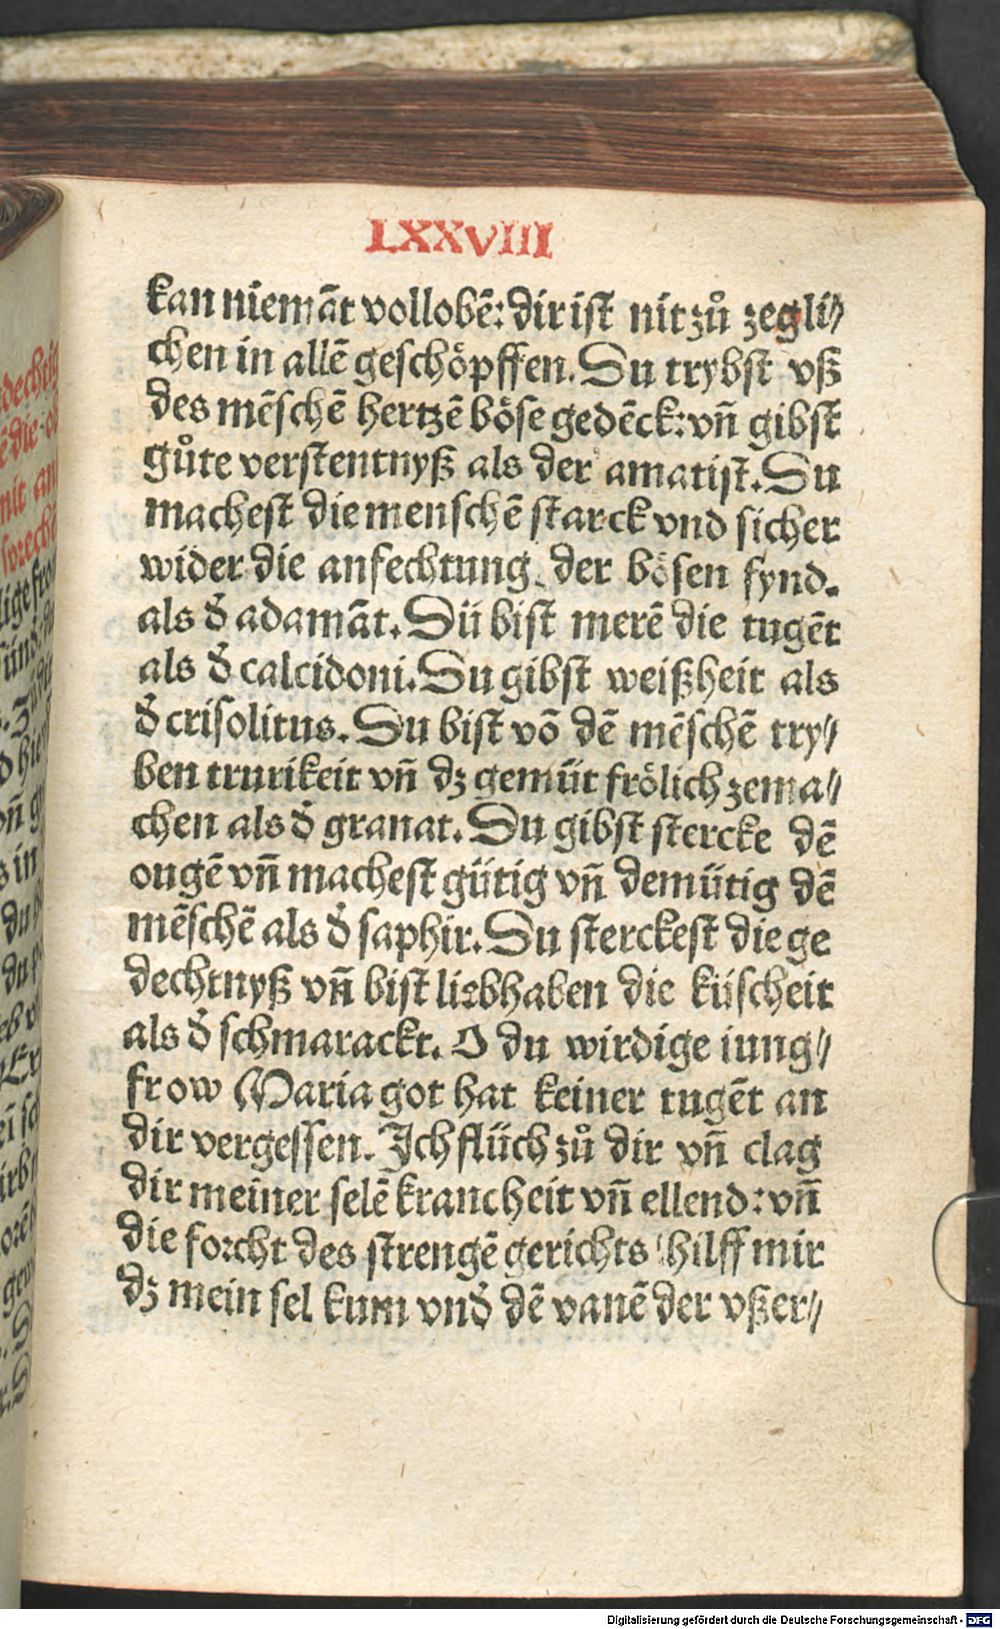 LXXVIII
kan niemāt vollobē: dir ist nit zů zegli⸗
chen in allē geschöpffen. Du trybst vß
des mēschē hertzē böse gedēck: vñ gibst
gůte verstentnyß als der amatist. Du
machest die menschē starck vnd sicher
wider die anfechtung der bösen fynd.
als d̛ adamāt. Dü bist merē die tugēt
als d̛ calcidoni. Du gibst weißheit als
d̛ crisolitus. Du bist vō dē mēschē try⸗
ben trurikeit vñ dz gemüt frölich zema⸗
chen als d̛ granat. Du gibst stercke dē
ougē vñ machest gütig vñ demütig dē
mēschē als d̛ saphir. Du sterckest die ge
dechtnyß vñ bist liebhaben die küscheit
als d̛ schmarackt. O du wirdige iung⸗
frow Maria got hat keiner tugēt an
dir vergessen. Ich flüch zů dir vñ clag
dir meiner selē kranckheit vñ ellend: vñ
die forcht des strengē gerichts hilff mir
dz mein sel kum vnd̛ dē vanē der vßer⸗
Digitalisierung gefördert durch die Deutsche Forschungsgemeinschaft - DFG